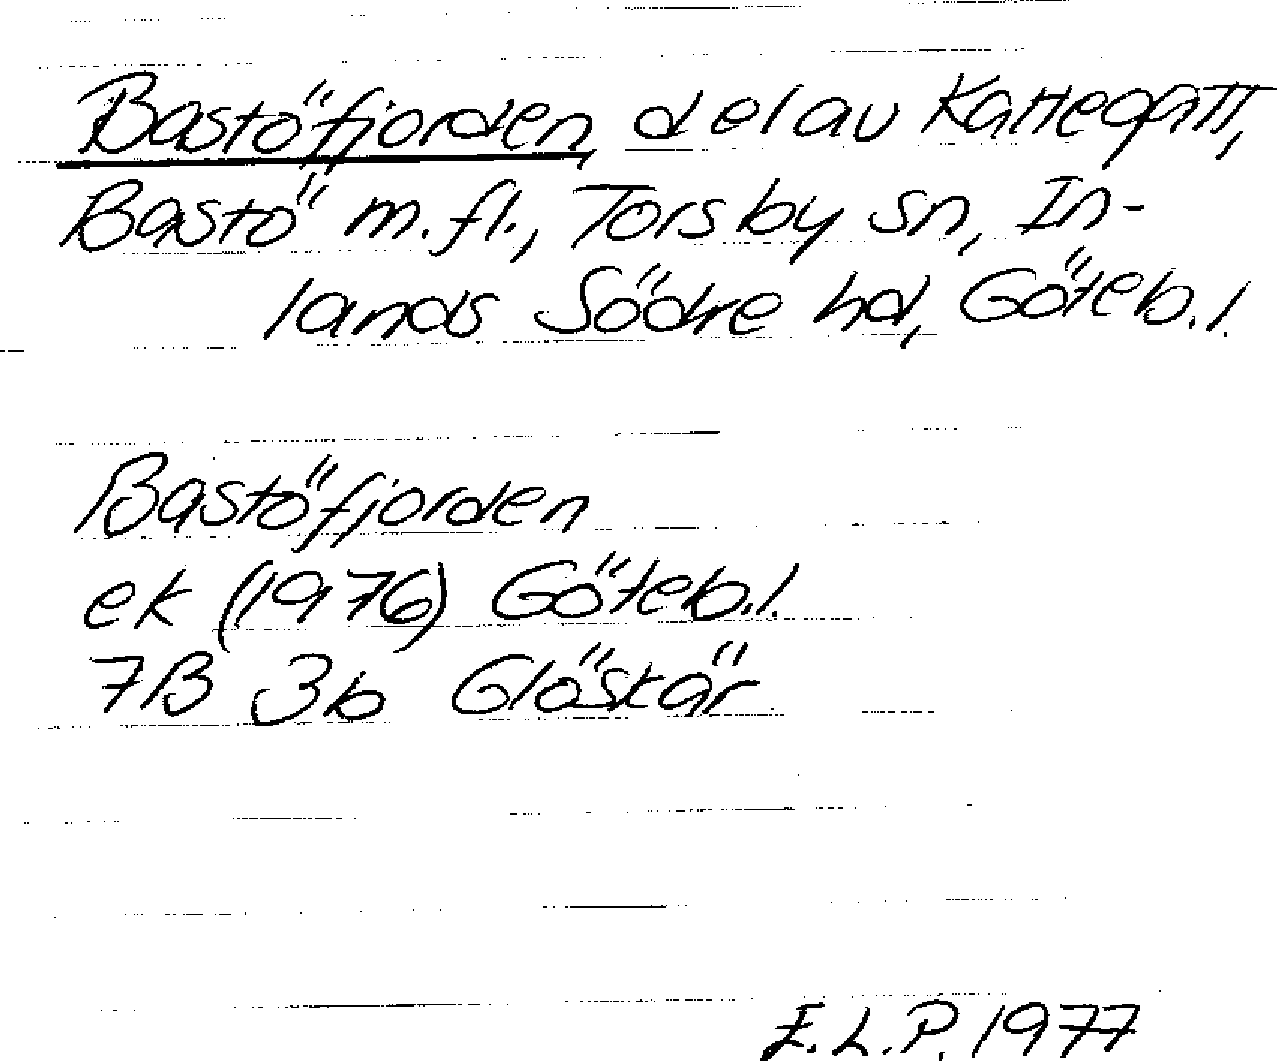 Bastöfjorden, del av Kattegatt,
Bastö m.fl., Torsby sn, In-
lands Södre hd, Göteb.l.
Bastöfjorden
ek (1976) Göteb.l.
7B 3b Glöskär
E.L.P. 1977